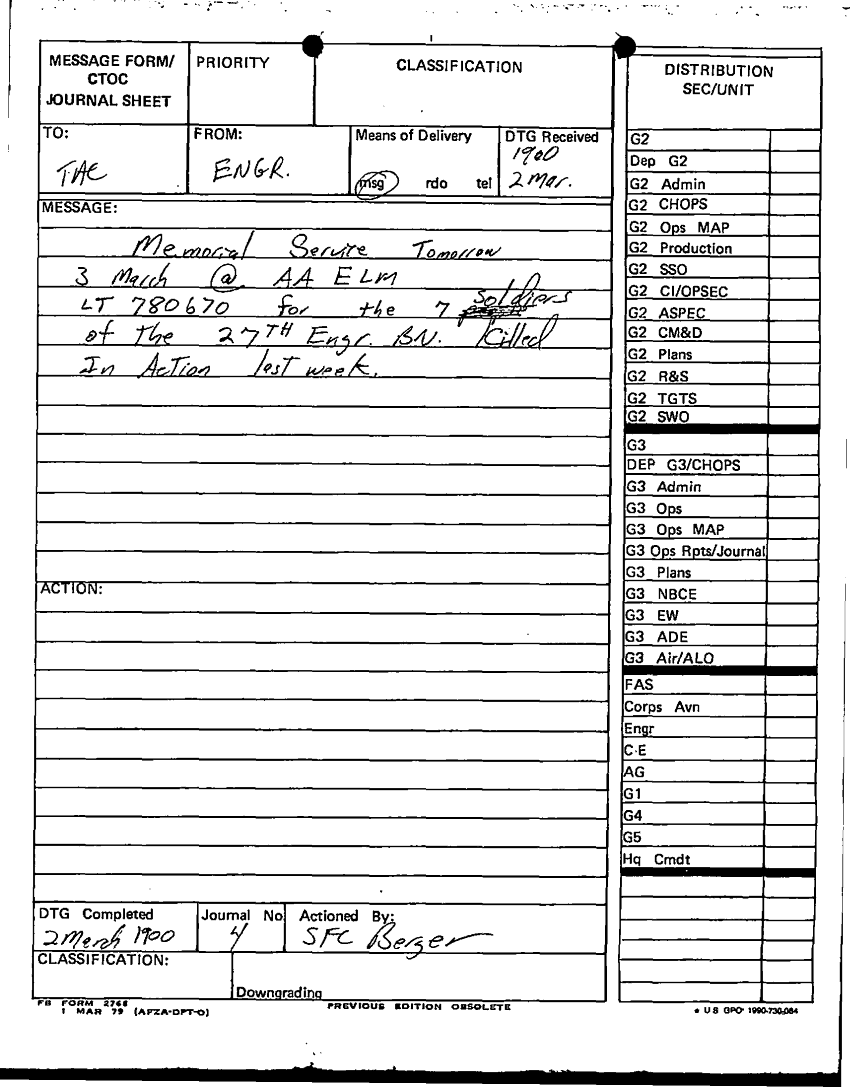 MESSAGE FORM/
CTOC
JOURNAL SHEET
PRIORITY
CLASSIFICATION
TO:
TAC
FROM:
ENGR.
Means of Delivery
msg rdo tel
DTG Received
1900
2 Mar.
MESSAGE:
Memorial Service Tomorrow
3 March @ AA ELM
LT 780670 for the 7 Soldiers
of the 27TH Engr. BN. Killed
In Action last week.
ACTION:
DTG Completed
2 March 1900
Journal No
4
Actioned By:
SFC Berger
CLASSIFICATION:
Downgrading
FB FORM 2768
1 MAR 79 (AFZA-DPT-O)
PREVIOUS EDITION OBSOLETE
DISTRIBUTION
SEC/UNIT
G2
Dep G2
G2 Admin
G2 CHOPS
G2 Ops MAP
G2 Production
G2 SSO
G2 CI/OPSEC
G2 ASPEC
G2 CM&D
G2 Plans
G2 R&S
G2 TGTS
G2 SWO
G3
DEP G3/CHOPS
G3 Admin
G3 Ops
G3 Ops MAP
G3 Ops Rpts/Journal
G3 Plans
G3 NBCE
G3 EW
G3 ADE
G3 Air/ALO
FAS
Corps Avn
Engr
C-E
AG
G1
G4
G5
Hq Cmdt
* U S GPO 1990-730-084